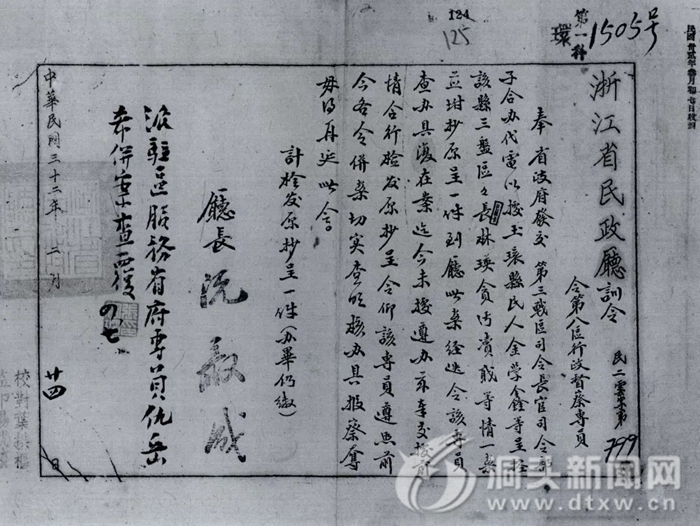 第一科
環
1505号
124
125
浙江省民政廳訓令
民二 字第799
令第八區行政督察專員
奉 省政府發交 第三戰區司令長官司令部
子合办代電以據玉環縣民人金學鑫等呈控
該縣三盤區々長林瑛貪污瀆職等情
抄原呈一件到廳此案經迭令該專員
查办具復在案迄今未據遵办 奉交前
情合行檢发原抄呈令仰該專員遵照前
今各令併案切实查明核办具报察奪
毋得再延此令
計檢发原抄呈一件(办畢仍繳)
廳長阮毅成
派駐區服務省府專員仇岳
希併案查覆
四七
中華民國三十二年 二月 廿四 日
校對
監印
洞头新闻网
www.dtxw.cn